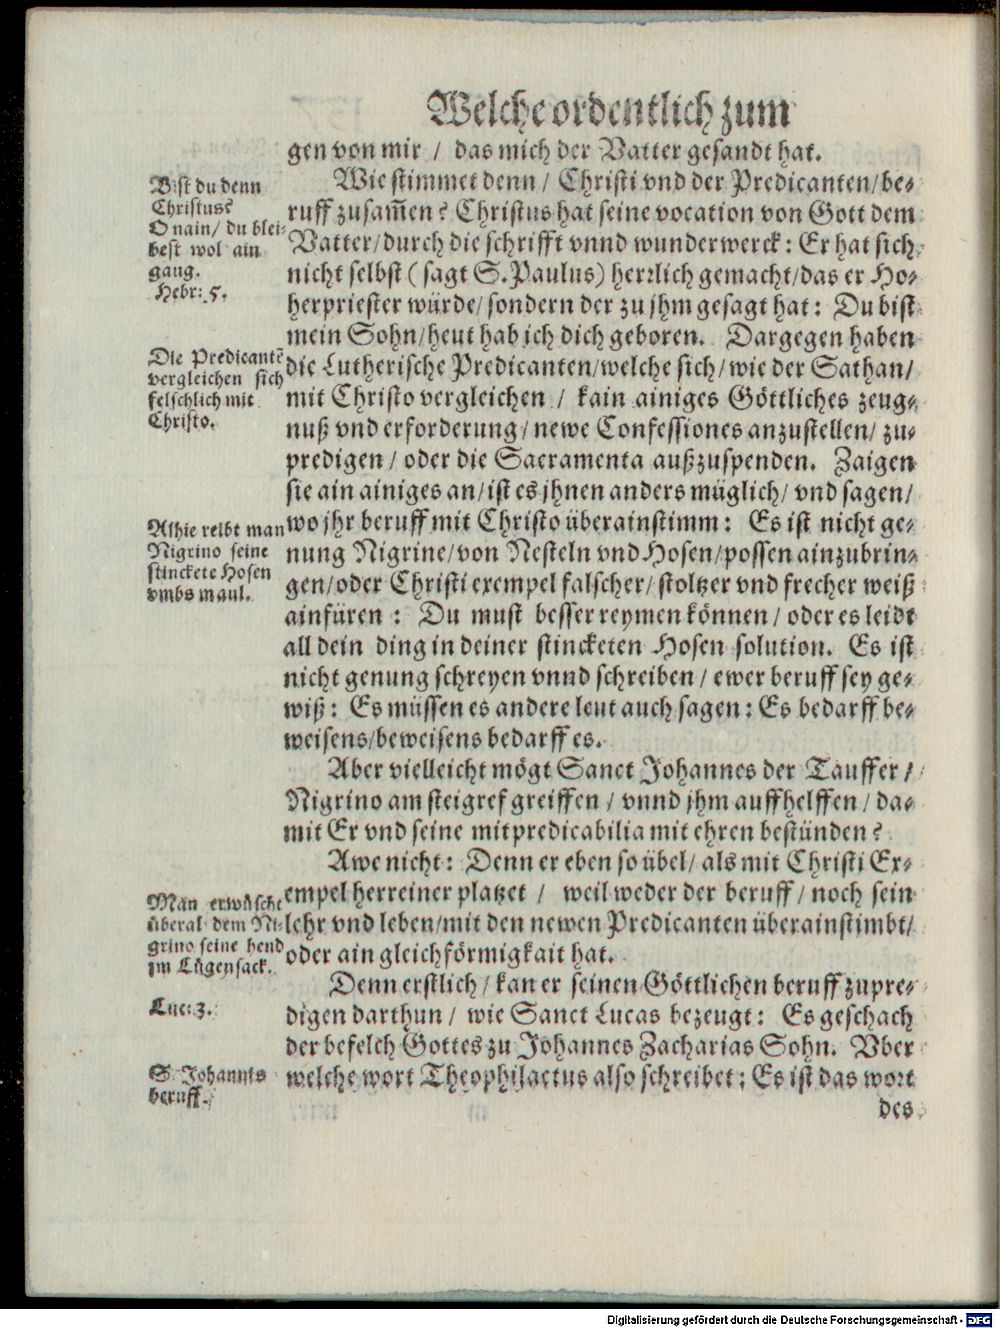 Welche ordentlich zum
gen von mir / das mich der Vatter gesandt hat.
Wie stimmet denn / Christi vnd der Predicanten / be-
ruff zusam̃en? Christus hat seine vocation von Gott dem
Vatter / durch die schrifft vnnd wunderwerck: Er hat sich
nicht selbst (sagt S. Paulus) herrlich gemacht / das er Ho-
herpriester würde / sondern der zu jhm gesagt hat: Du bist
mein Sohn / heut hab ich dich geboren. Dargegen haben
die Lutherische Predicanten / welche sich / wie der Sathan /
mit Christo vergleichen / kain ainiges Göttliches zeug-
nuß vnd erforderung / newe Confessiones anzustellen / zu-
predigen / oder die Sacramenta außzuspenden. Zaigen
sie ain ainiges an / ist es jhnen anders müglich / vnd sagen /
wo jhr beruff mit Christo überainstimm: Es ist nicht ge-
nung Nigrine / von Nesteln vnd Hosen / possen ainzubrin-
gen / oder Christi exempel falscher / stoltzer vnd frecher weiß
ainfüren: Du must besser reymen können / oder es leidt
all dein ding in deiner stincketen Hosen solution. Es ist
nicht genung schreyen vnnd schreiben / ewer beruff sey ge-
wiß: Es müssen es andere leut auch sagen: Es bedarff be-
weisens / beweisens bedarff es.
Aber vielleicht mögt Sanct Johannes der Tauffer /
Nigrino am steigref greiffen / vnnd jhm auffhelffen / da-
mit Er vnd seine mitpredicabilia mit ehren bestünden?
Awe nicht: Denn er eben so übel / als mit Christi Ex-
empel herreiner platzet / weil weder der beruff / noch sein
lehr vnd leben / mit den newen Predicanten überainstimbt /
oder ain gleichförmigkait hat.
Denn erstlich / kan er seinen Göttlichen beruff zupre-
digen darthun / wie Sanct Lucas bezeugt: Es geschach
der befelch Gottes zu Johannes Zacharias Sohn. Vber
welche wort Theophilactus also schreibet: Es ist das wort
des
Bist du denn
Christus?
O nain / du blei-
best wol ain
gaug.
Hebr: 5.
Die Predicantẽ
vergleichen sich
felschlich mit
Christo.
Alhie reibt man
Nigrino seine
stinckete Hosen
vmbs maul.
Man erwüscht
überal dem Ni-
grino seine hend
im Lügensack.
Luc: 3.
S. Johannis
beruff.
Digitalisierung gefördert durch die Deutsche Forschungsgemeinschaft - DFG